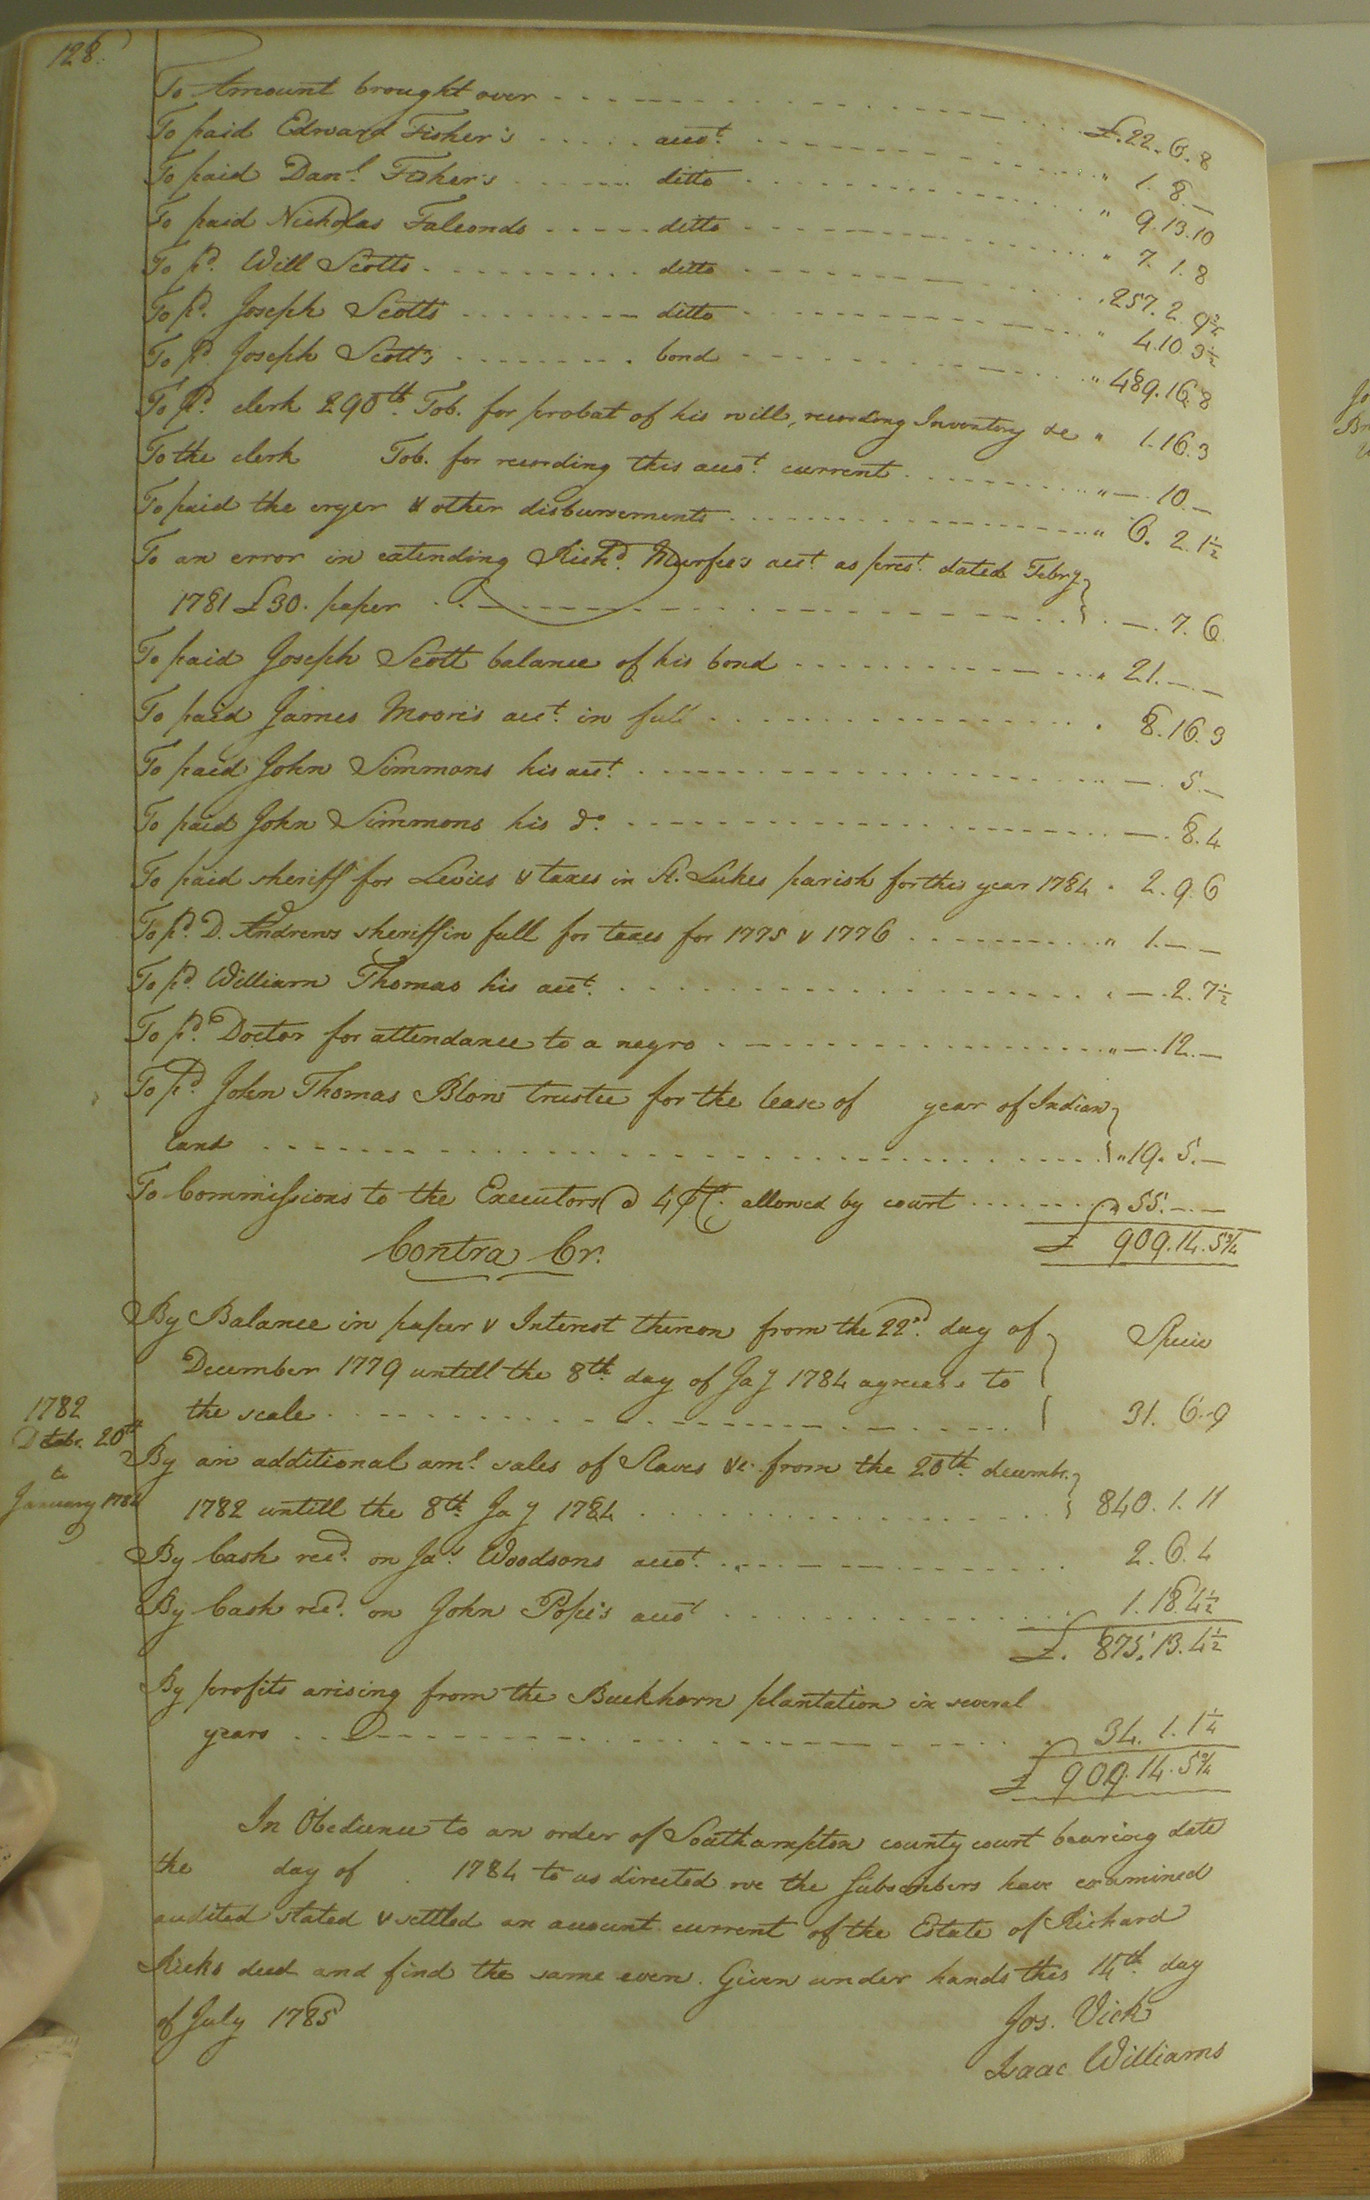 128.
To Amount brought over £.22.6.8
To paid Edward Fisher's accot. " 1.8.—
To paid Danl. Fisher's ditto " 9.13.10
To paid Nicholas Falconds ditto " 7.1.8
To pd. Will Scotts ditto .257.2.9¾
To pd. Joseph Scotts ditto " 4.10.3½
To pd Joseph Scott's bond " 489.16.8
To pd. clerk 290th. Tob. for probat of his will, recording Inventory &c " 1.16.3
To the clerk Tob. for recording this accot. current " — 10.—
To paid the cryer & other disbursements " 6.2.1½
To an error in extending Richd. Murfee's acct. as prest. dated Febry
1781 £30. paper —.7.6
To paid Joseph Scott balance of his bond " 21.—.—
To paid James Moore's acct. in full . 8.16.3
To paid John Simmons his acct. — . 5.—
To paid John Simmons his do. — . 8.4
To paid sheriff for Levies & taxes in St. Lukes parish for the year 1784 . 2.9.6
To pd. D. Andrews sheriff in full for taxes for 1775 & 1776 " 1.—.—
To pd. William Thomas his acct. . —.2.7½
To pd. Doctor for attendance to a negro " —.12.—
To pd John Thomas Blow trustee for the lease of year of Indian
land " 19.5.—
To Commissions to the Executors @ 4 ⅌Ct. allowed by court " 55.—.—
£ 909.14.5¾
Contra Cr.
By Balance in paper & Interest thereon from the 22d. day of Specie
December 1779 untill the 8th. day of Jay 1784 agreeae to
the scale 31.6.9
1782
Decbr. 20th
to
January 1784
By an additional amt. sales of Slaves &c. from the 20th. decembr.
1782 untill the 8th. Jay 1784 840.1.11
By Cash recd. on Jas. Woodsons accot. 2.6.4
By Cash recd. on John Pope's accot 1.18.4½
£. 875.13.4½
By profits arising from the Buckhorn plantation in several
years 34.1.1¼
£ 909.14.5¾
In Obedience to an order of Southampton county court bearing date
the day of 1784 to us directed we the Subscribers have examined
audited stated & settled an account current of the Estate of Richard
Ricks decd and find the same even. Given under hands this 14th. day
of July 1785
Jos. Vick
Isaac Williams